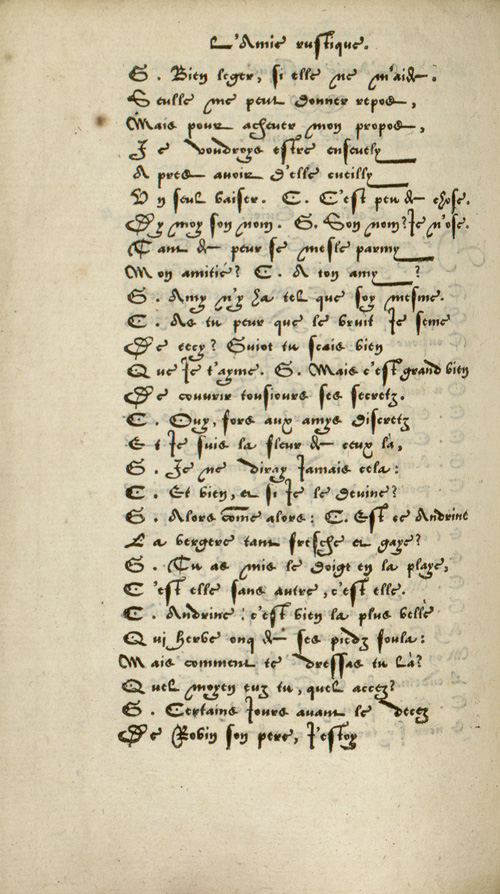 L'Amie rustique.
G. Bien leger, si elle ne m'aide.
Seulle me peut donner repos,
Mais pour achever mon propos,
Je voudroys estre ensevely
Apres avoir d'elle cueilly
Un seul baiser. C. C'est peu de chose.
Dy moy son nom. G. Son nom? Je n'ose.
Tant de peur se mesle parmy
Mon amitié? C. A ton amy ?
G. Amy n'y ha tel que soy mesme.
C. As tu peur que le bruit Je seme
De cecy? Guiot tu scais bien
Que Je t'ayme. G. Mais c'est grand bien
De couvrir tousiours ses secretz.
C. Ouy, fors aux amys discretz
Et Je suis la fleur de ceux la,
G. Je ne diray Jamais cela:
C. Et bien, et si Je le devine?
G. Alors cõme alors: C. Est ce Andrine
La bergere tant fresche et gaye?
G. Tu as mis le doigt en la playe,
C'est elle sans autre, c'est elle.
C. Andrine: c'est bien la plus belle
Qui herbe onq de ses piedz foula:
Mais comment te dressas tu là?
Quel moyen euz tu, quel accez?
G. Certains Jours avant le decez
De Robin son pere, J'estoy